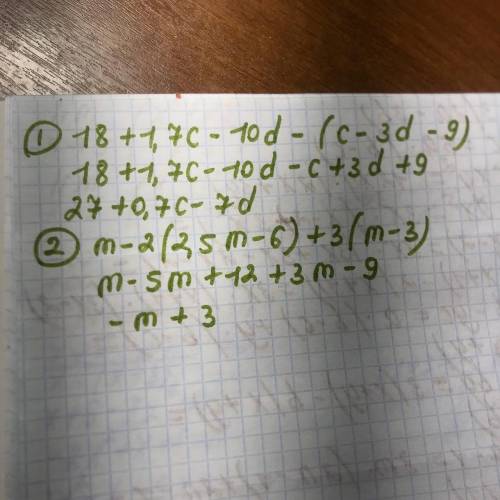 ① 18 + 1,7c - 10d - (c - 3d - 9)
18 + 1,7c - 10d - c + 3d + 9
27 + 0,7c - 7d
② m - 2(2,5m - 6) + 3(m - 3)
m - 5m + 12 + 3m - 9
- m + 3